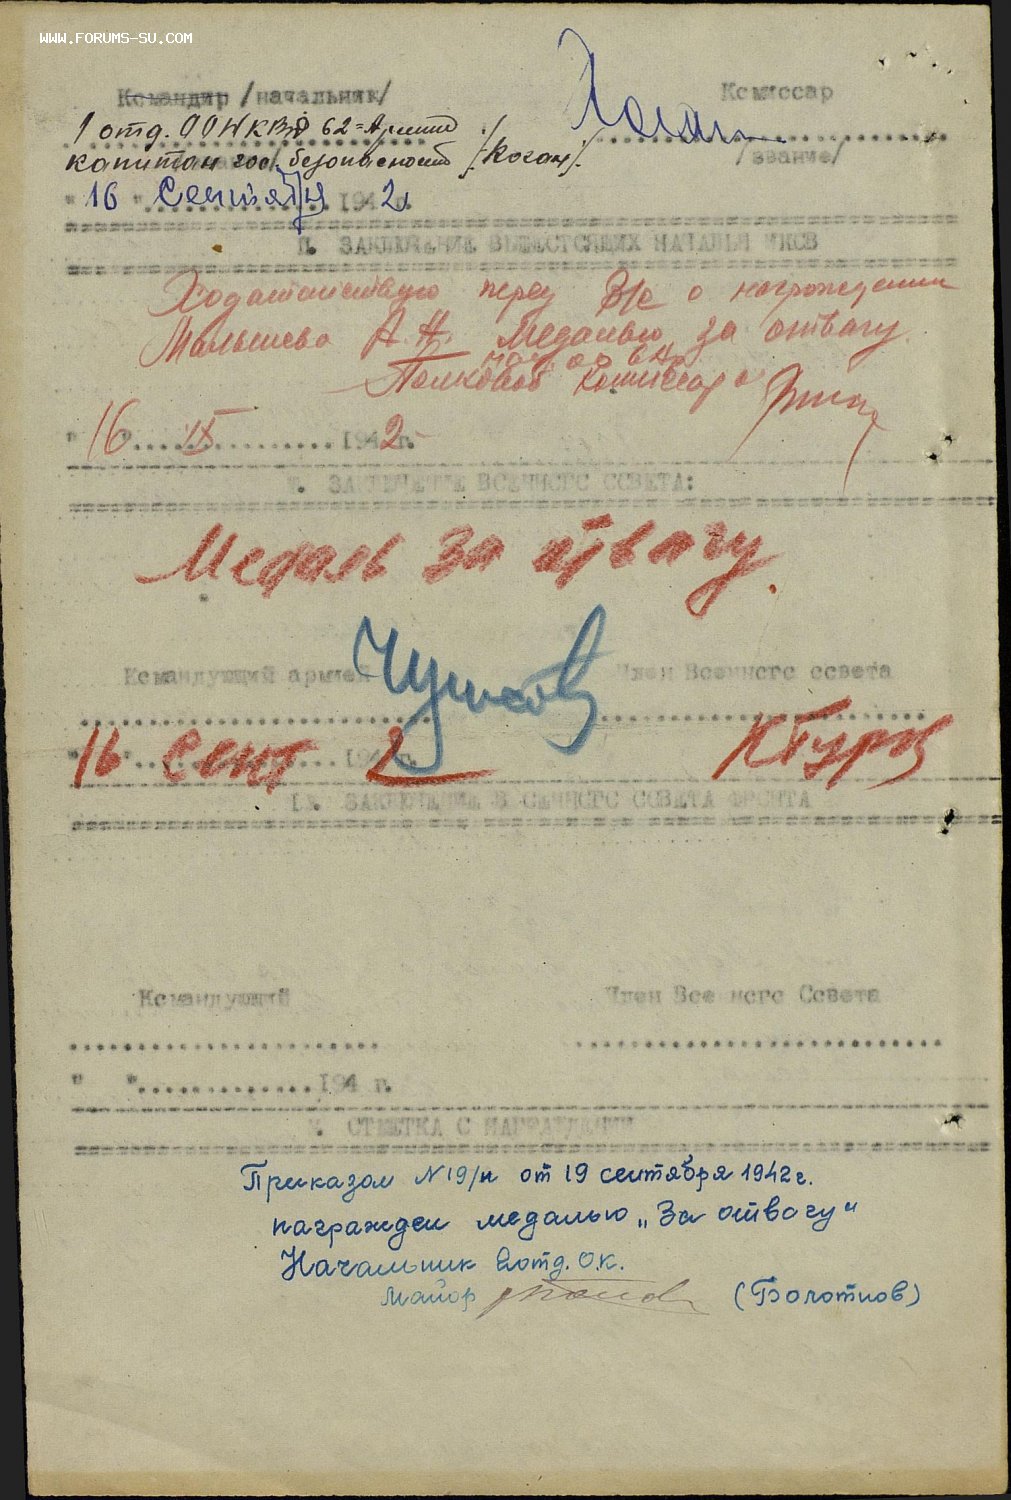 WWW.FORUMS-SU.COM
Командир /начальник/ Комиссар
1 отд. ОО НКВД 62 = Армии
капитан гос. безопасности /Коган/. /звание/
" 16 " Сентября 1942 г.
П. ЗАКЛЮЧЕНИЕ ВЫШЕСТОЯЩИХ НАЧАЛЬНИКОВ
Ходатайствую перед В/с о награждении
Малышева А.Н. Медалью за отвагу.
Полковой комиссар
" 16 " IX 1942 г.
ЗАКЛЮЧЕНИЕ ВОЕННОГО СОВЕТА:
Медаль за отвагу.
Командующий армией Член Военного совета
Чуйков
" 16 " сент 1942 г. КГуров
ЗАКЛЮЧЕНИЕ ВОЕННОГО СОВЕТА ФРОНТА
Командующий Член Военного Совета
" " 194 г.
У. ОТМЕТКА О НАГРАЖДЕНИИ
Приказом N 19/н от 19 сентября 1942 г.
награжден медалью „За отвагу"
Начальник 2 отд. О.К.
Майор (Болотнов)